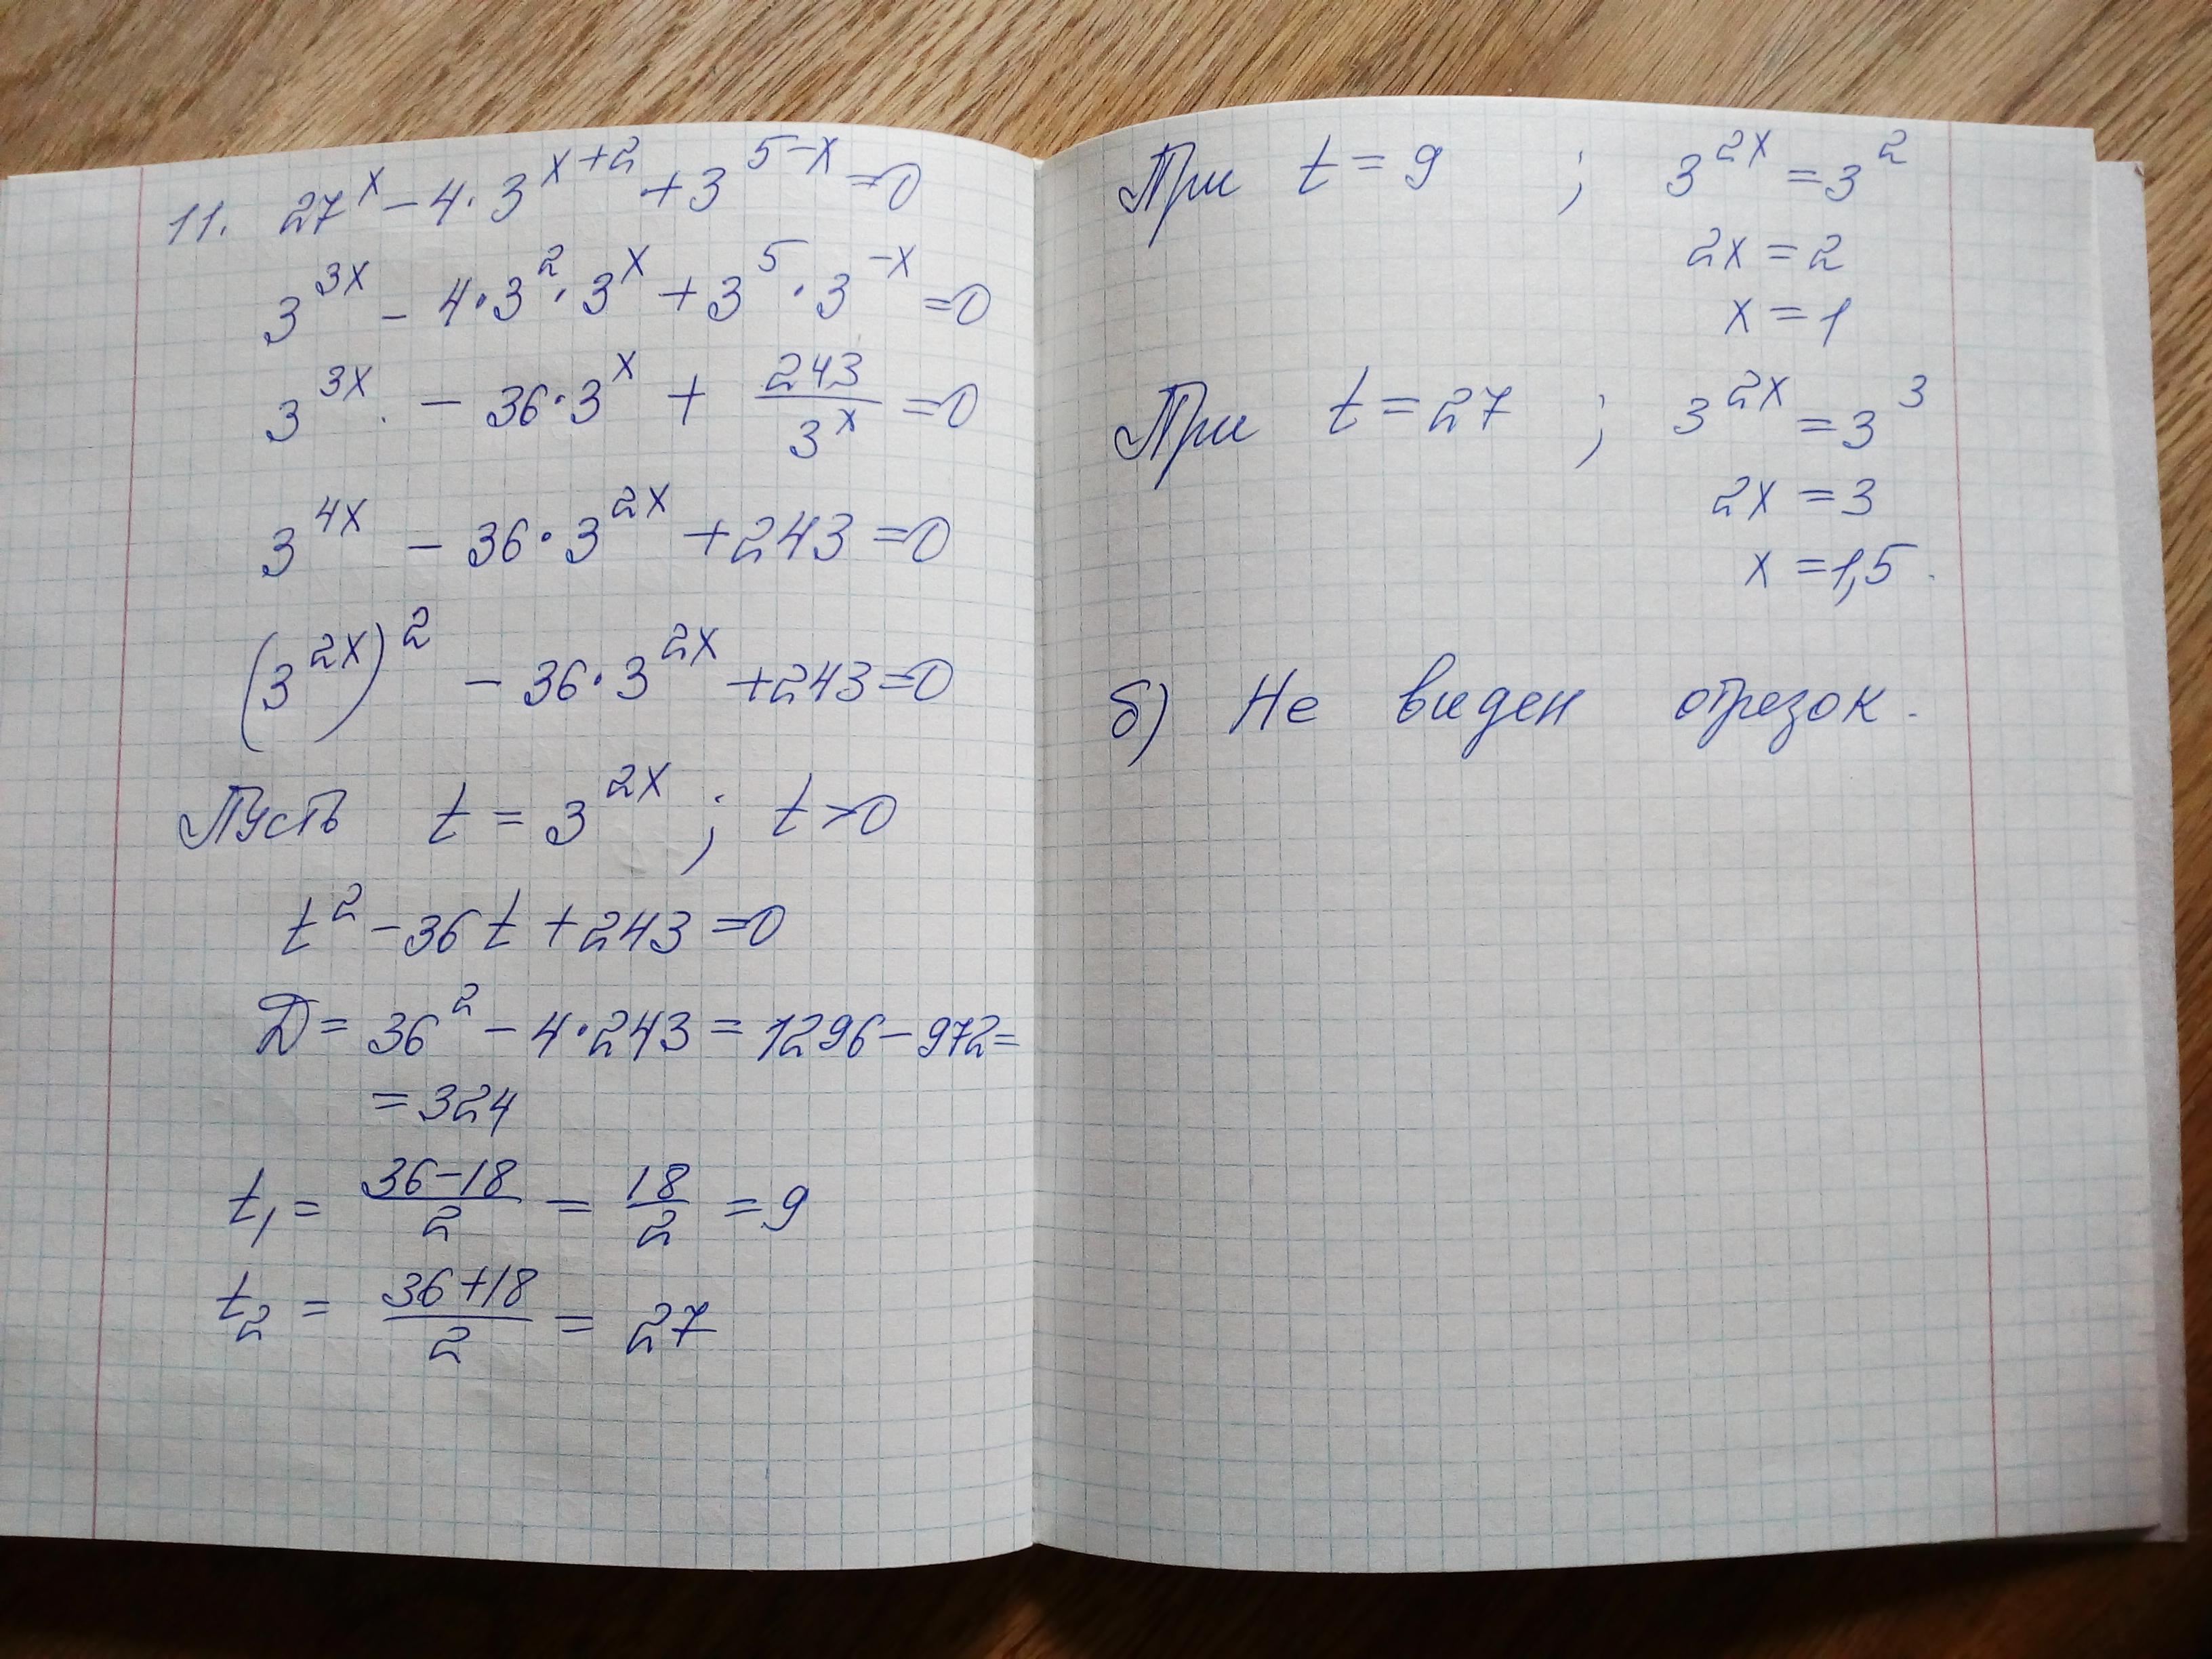 11. 27^x − 4·3^(x+2) + 3^(5−x) = 0
3^(3x) − 4·3^2·3^x + 3^5·3^(−x) = 0
3^(3x) − 36·3^x + 243/3^x = 0
3^(4x) − 36·3^(2x) + 243 = 0
(3^(2x))^2 − 36·3^(2x) + 243 = 0
Пусть t = 3^(2x); t > 0
t^2 − 36t + 243 = 0
Д = 36^2 − 4·243 = 1296 − 972 =
= 324
t₁ = (36−18)/2 = 18/2 = 9
t₂ = (36+18)/2 = 27
При t = 9 ; 3^(2x) = 3^2
2x = 2
x = 1
При t = 27 ; 3^(2x) = 3^3
2x = 3
x = 1,5.
б) Не виден отрезок.